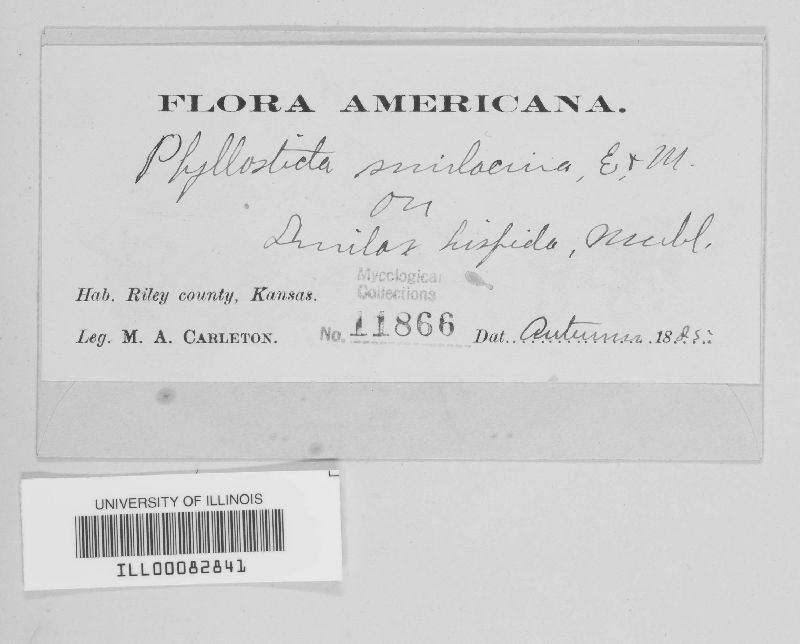 FLORA AMERICANA.
Phyllosticta smilacina, E. & M.
on
Smilax hispida, Muhl.
Hab. Riley county, Kansas.
Mycological
Collections
Leg. M. A. CARLETON.
No. 11866
Dat. Autumn 1885.
UNIVERSITY OF ILLINOIS
ILL00082841